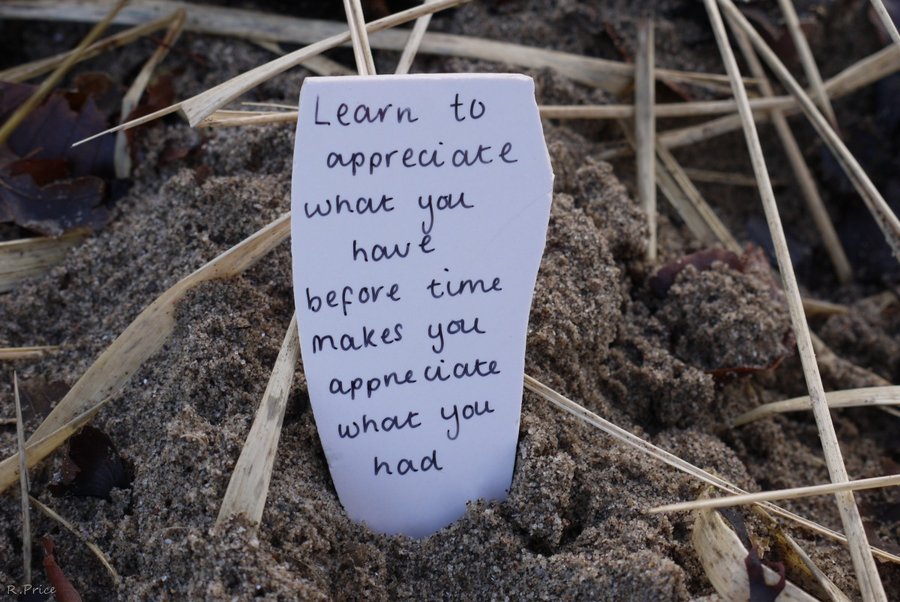 Learn to
appreciate
what you
have
before time
makes you
appreciate
what you
had
R.Price